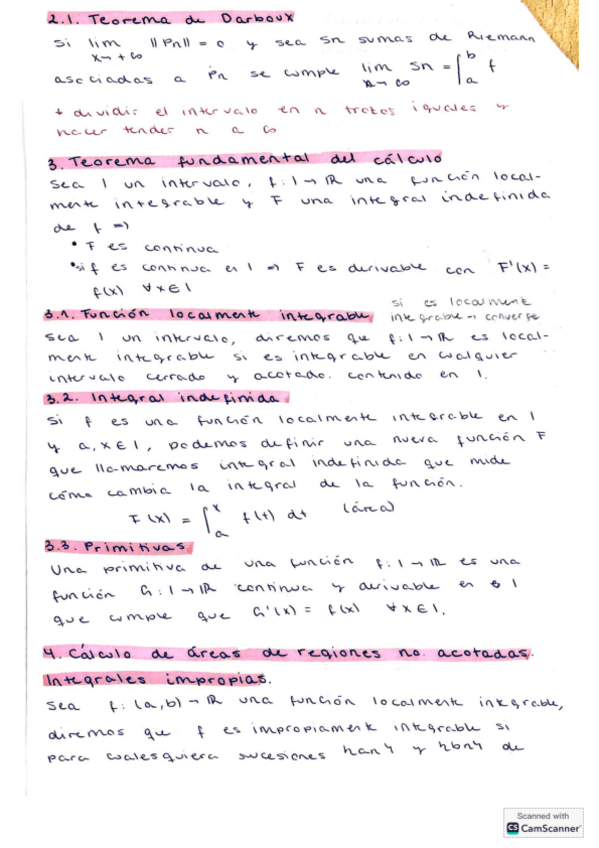 2.1. Teorema de Darboux
Si lim ||Pn|| = 0 y sea Sn sumas de Riemann
x→+∞
asociadas a Pn se cumple lim Sn = ∫_a^b f
x→∞
+ dividir el intervalo en n trozos iguales y
hacer tender n a ∞
3. Teorema fundamental del cálculo
Sea I un intervalo, f: I → ℝ una función local-
mente integrable y F una integral indefinida
de f ⇒
• F es continua
• si f es continua en I ⇒ F es derivable con F'(x) =
f(x) ∀x∈I
si es localmente
3.1. Función localmente integrable integrable → converge
Sea I un intervalo, diremos que f: I → ℝ es local-
mente integrable si es integrable en cualquier
intervalo cerrado y acotado. contenido en I.
3.2. Integral indefinida
Si f es una función localmente integrable en I
y a, x ∈ I, podemos definir una nueva función F
que llamaremos integral indefinida que mide
cómo cambia la integral de la función.
F(x) = ∫_a^x f(t) dt (área)
3.3. Primitivas
Una primitiva de una función f: I → ℝ es una
función G: I → ℝ continua y derivable en I
que cumple que G'(x) = f(x) ∀x∈I.
4. Cálculo de áreas de regiones no acotadas.
Integrales impropias.
Sea f: (a,b) → ℝ una función localmente integrable,
diremos que f es impropiamente integrable si
para cualesquiera sucesiones {an} y {bn} de
Scanned with
CS CamScanner